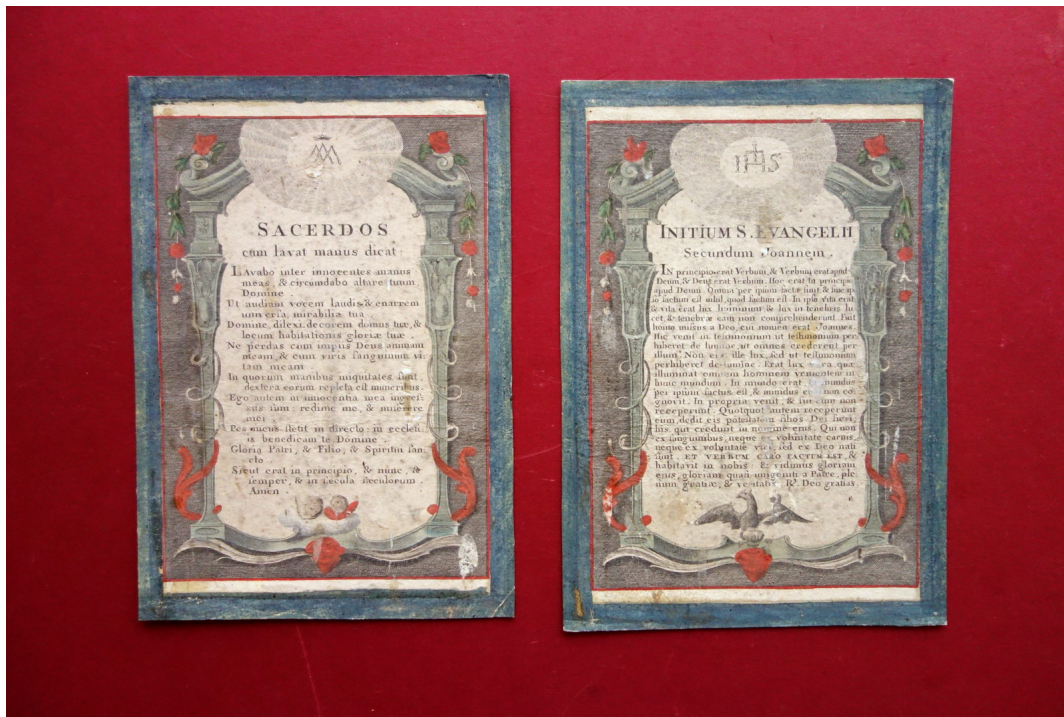 SACERDOS
cum lavat manus dicat
LAvabo inter innocentes manus
meas, & circūmdabo altare tuum
Domine.
Ut audiam vocem laudis & enarrem
universa mirabilia tua
Domine dilexi decorem domus tuæ, &
locum habitationis gloriæ tuæ.
Ne perdas cum impiis Deus animam
meam, & cum viris sanguinum vi
tam meam
In quorum manibus iniquitates sunt,
dextera eorum repleta est muneribus.
Ego autem in innocentia mea ingres-
sus sum: redime me, & miserere
mei.
Pes meus stetit in directo: in ecclesi
is benedicam te Domine.
Gloria Patri, & Filio, & Spiritui San
cto.
Sicut erat in principio, & nunc, &
semper, & in sæcula sæculorum
Amen.
IHS
INITIUM S. EVANGELII
Secundum Joannem.
IN principio erat Verbum, & Verbum erat apud
Deum, & Deus erat Verbum. Hoc erat in principio
apud Deum. Omnia per ipsum facta sunt & sine ip
so factum est nihil, quod factum est. In ipso vita erat
& vita erat lux hominum & lux in tenebris lu
cet, & tenebræ eam non comprehenderunt. Fuit
homo missus a Deo, cui nomen erat Joannes.
Hic venit in testimonium ut testimonium per
hiberet de lumine, ut omnes crederent per
illum. Non erat ille lux, sed ut testimonium
perhiberet de lumine. Erat lux vera quæ
illuminat omnem hominem venientem in
hunc mundum. In mundo erat mundus
per ipsum factus est, & mundus eum non co
gnovit. In propria venit, & sui eum non
receperunt. Quotquot autem receperunt
eum, dedit eis potestatem filios Dei fieri,
his qui credunt in nomine eius. Qui non
ex sanguinibus, neque ex voluntate carnis,
neque ex voluntate viri, sed ex Deo nati
sunt. ET VERBUM CARO FACTUM EST, &
habitavit in nobis: & vidimus gloriam
eius, gloriam quasi unigeniti a Patre, ple
num gratiæ, & veritatis. R. Deo gratias